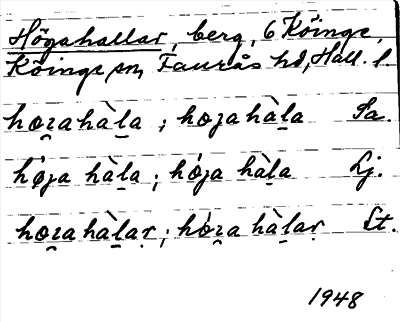 Högahallar, berg, 6 Köinge,
Köinge sn, Faurås hd, Hall. l.
hœɀahàl̠a ; hœɀahàl̠a Sa.
hø̀ɀa hàl̠a ; hø̀ɀa hàl̠a Lj.
hœɀahàl̠ar ; hœ̀ɀa hàl̠ar St.
1948